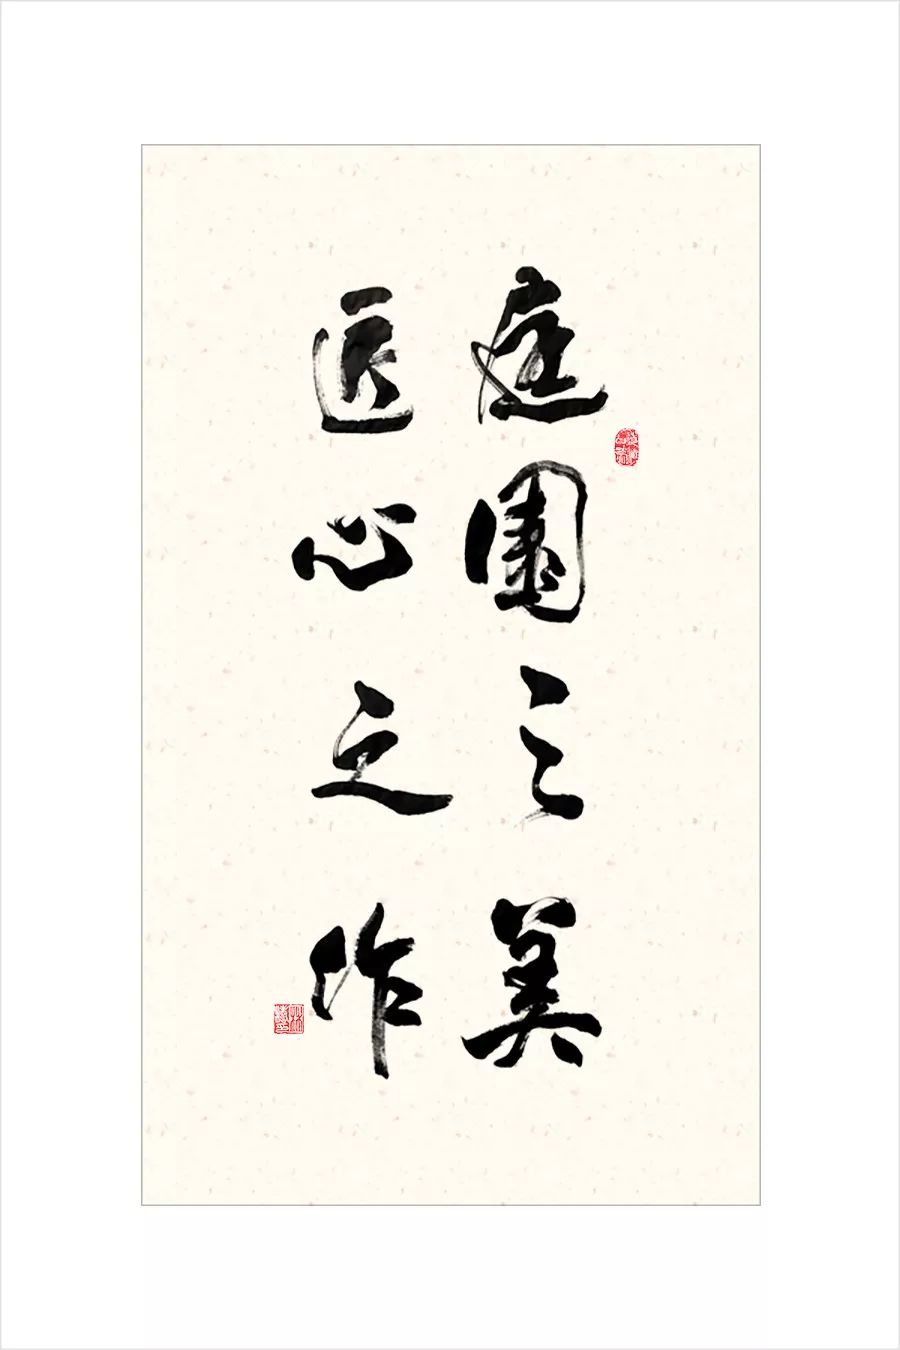 庭園之美
匠心之作